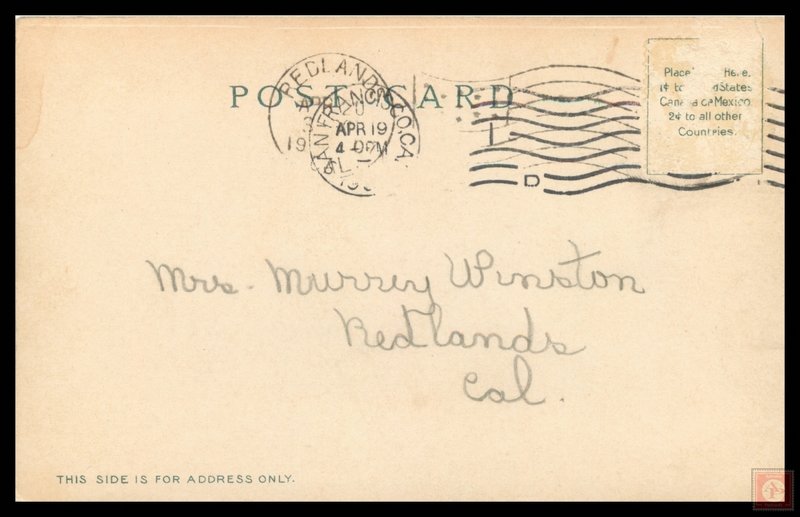 POST CARD
REDLANDS
SAN FRANCISCO, CA.
APR 19
4-PM
D
Place Here.
1¢ to States
Canada or Mexico
2¢ to all other
Countries.
Mrs. Murrey Winston
Redlands
Cal.
THIS SIDE IS FOR ADDRESS ONLY.